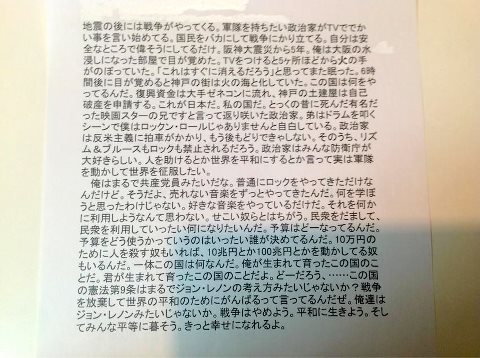 地震の後には戦争がやってくる。軍隊を持ちたい政治家がTVででか
い事を言い始めてる。国民をバカにして戦争にかり立てる。自分は安
全なところで偉そうにしてるだけ。阪神大震災から5年。俺は大阪の水
浸しになった部屋で目が覚めた。TVをつけると5ヶ所ほどから火の手
がのぼっていた。「これはすぐに消えるだろう」と思ってまた眠った。6時
間後に目が覚めると神戸の街は火の海と化していた。この国は何をや
ってるんだ。復興資金は大手ゼネコンに流れ、神戸の土建屋は自己
破産を申請する。これが日本だ。私の国だ。とっくの昔に死んだ有名だ
った映画スターの兄ですと言って返り咲いた政治家。弟はドラムを叩く
シーンで僕はロックン・ロールじゃありませんと自白している。政治家
は反米主義に拍車がかかり、もう後もどりできゃしない。そのうち、リズ
ム&ブルースもロックも禁止されるだろう。政治家はみんな防衛庁が
大好きらしい。人を助けるとか世界を平和にするとか言って実は軍隊
を動かして世界を征服したい。
　俺はまるで共産党員みたいだな。普通にロックをやってきただけな
んだけど。そうだよ、売れない音楽をずっとやってきたんだ。何を学ぼ
うと思ったわけじゃない。好きな音楽をやっているだけだ。それを何か
に利用しようなんて思わない。せこい奴らとはちがう。民衆をだまして、
民衆を利用していったい何になりたいんだ。予算はどーなってるんだ。
予算をどう使うかっていうのはいったい誰が決めてるんだ。10万円の
ために人を殺す奴もいれば、10兆円とか100兆円とかを動かしてる奴
もいるんだ。一体この国は何なんだ。俺が生まれて育ったこの国のこ
とだ。君が生まれて育ったこの国のことだよ。どーだろう、……この国
の憲法第9条はまるでジョン・レノンの考え方みたいじゃないか?戦争
を放棄して世界の平和のためにがんばるって言ってるんだぜ。俺達は
ジョン・レノンみたいじゃないか。戦争はやめよう。平和に生きよう。そし
てみんな平等に暮そう。きっと幸せになれるよ。